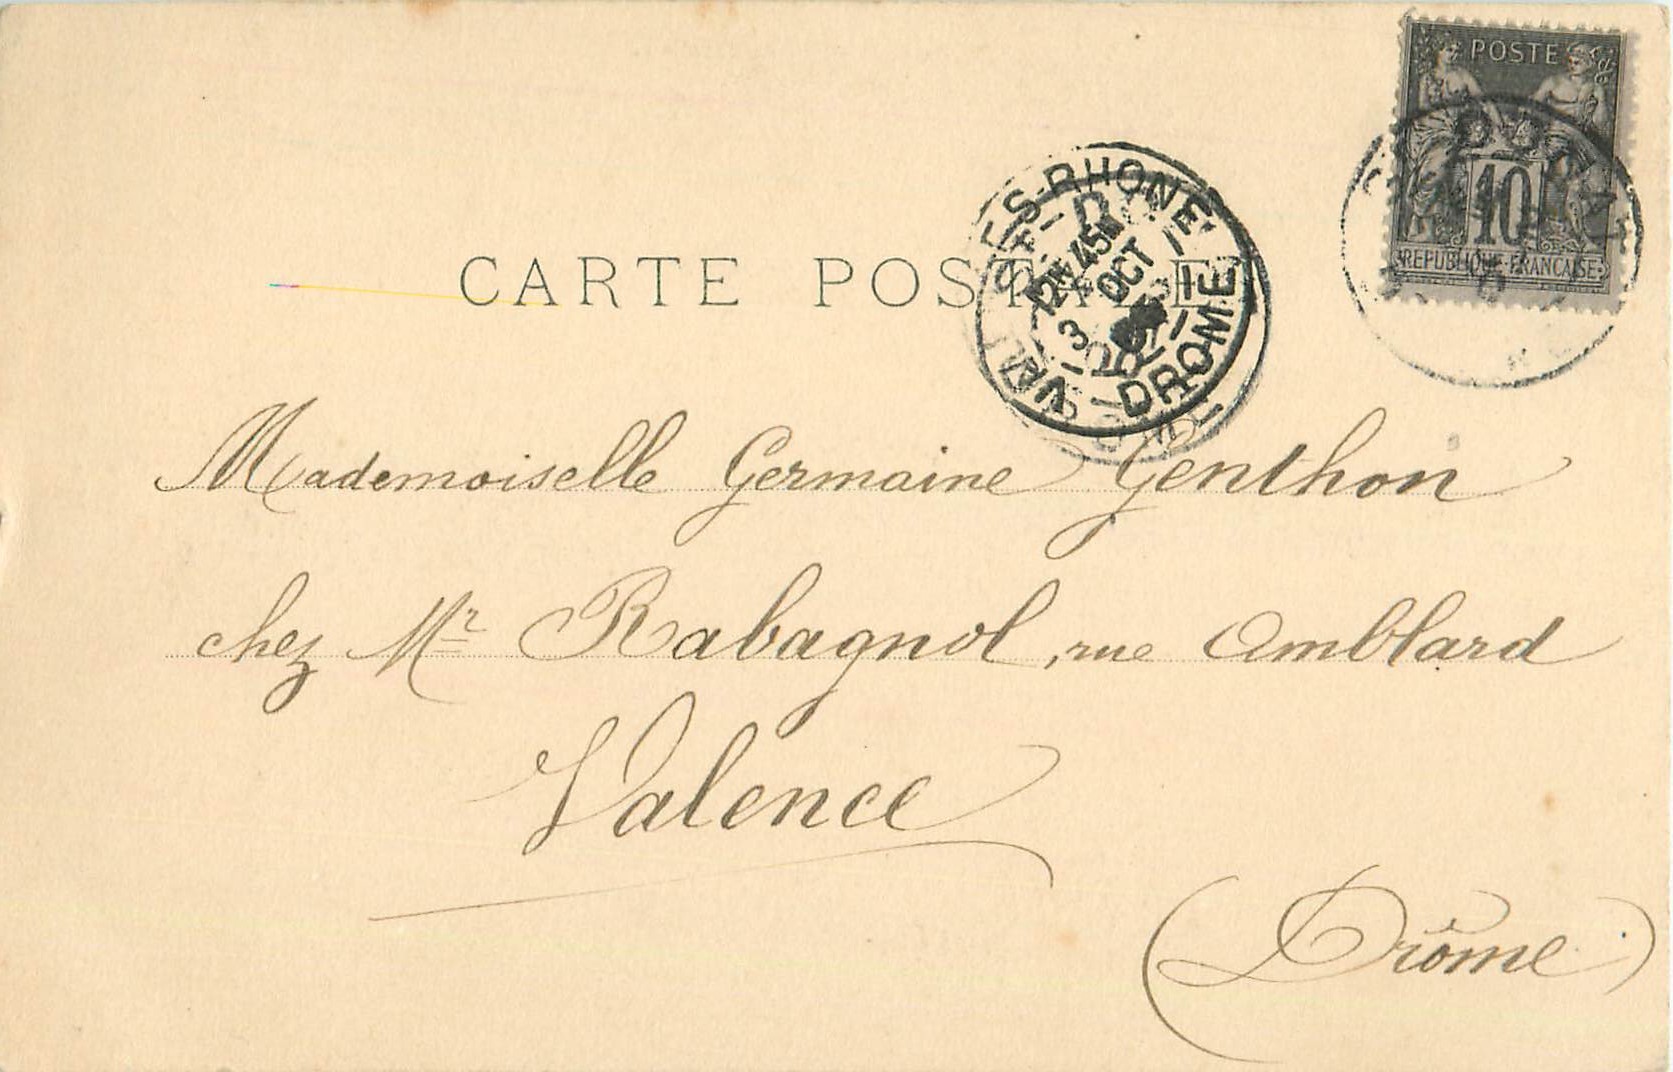 POSTE
10
REPUBLIQUE FRANÇAISE
CARTE POSTALE
ES-RHONE
12 45
3 OCT
DROME
Mademoiselle Germaine Genthon
chez Mr Rabagnol, rue Amblard
Valence
(Drôme)